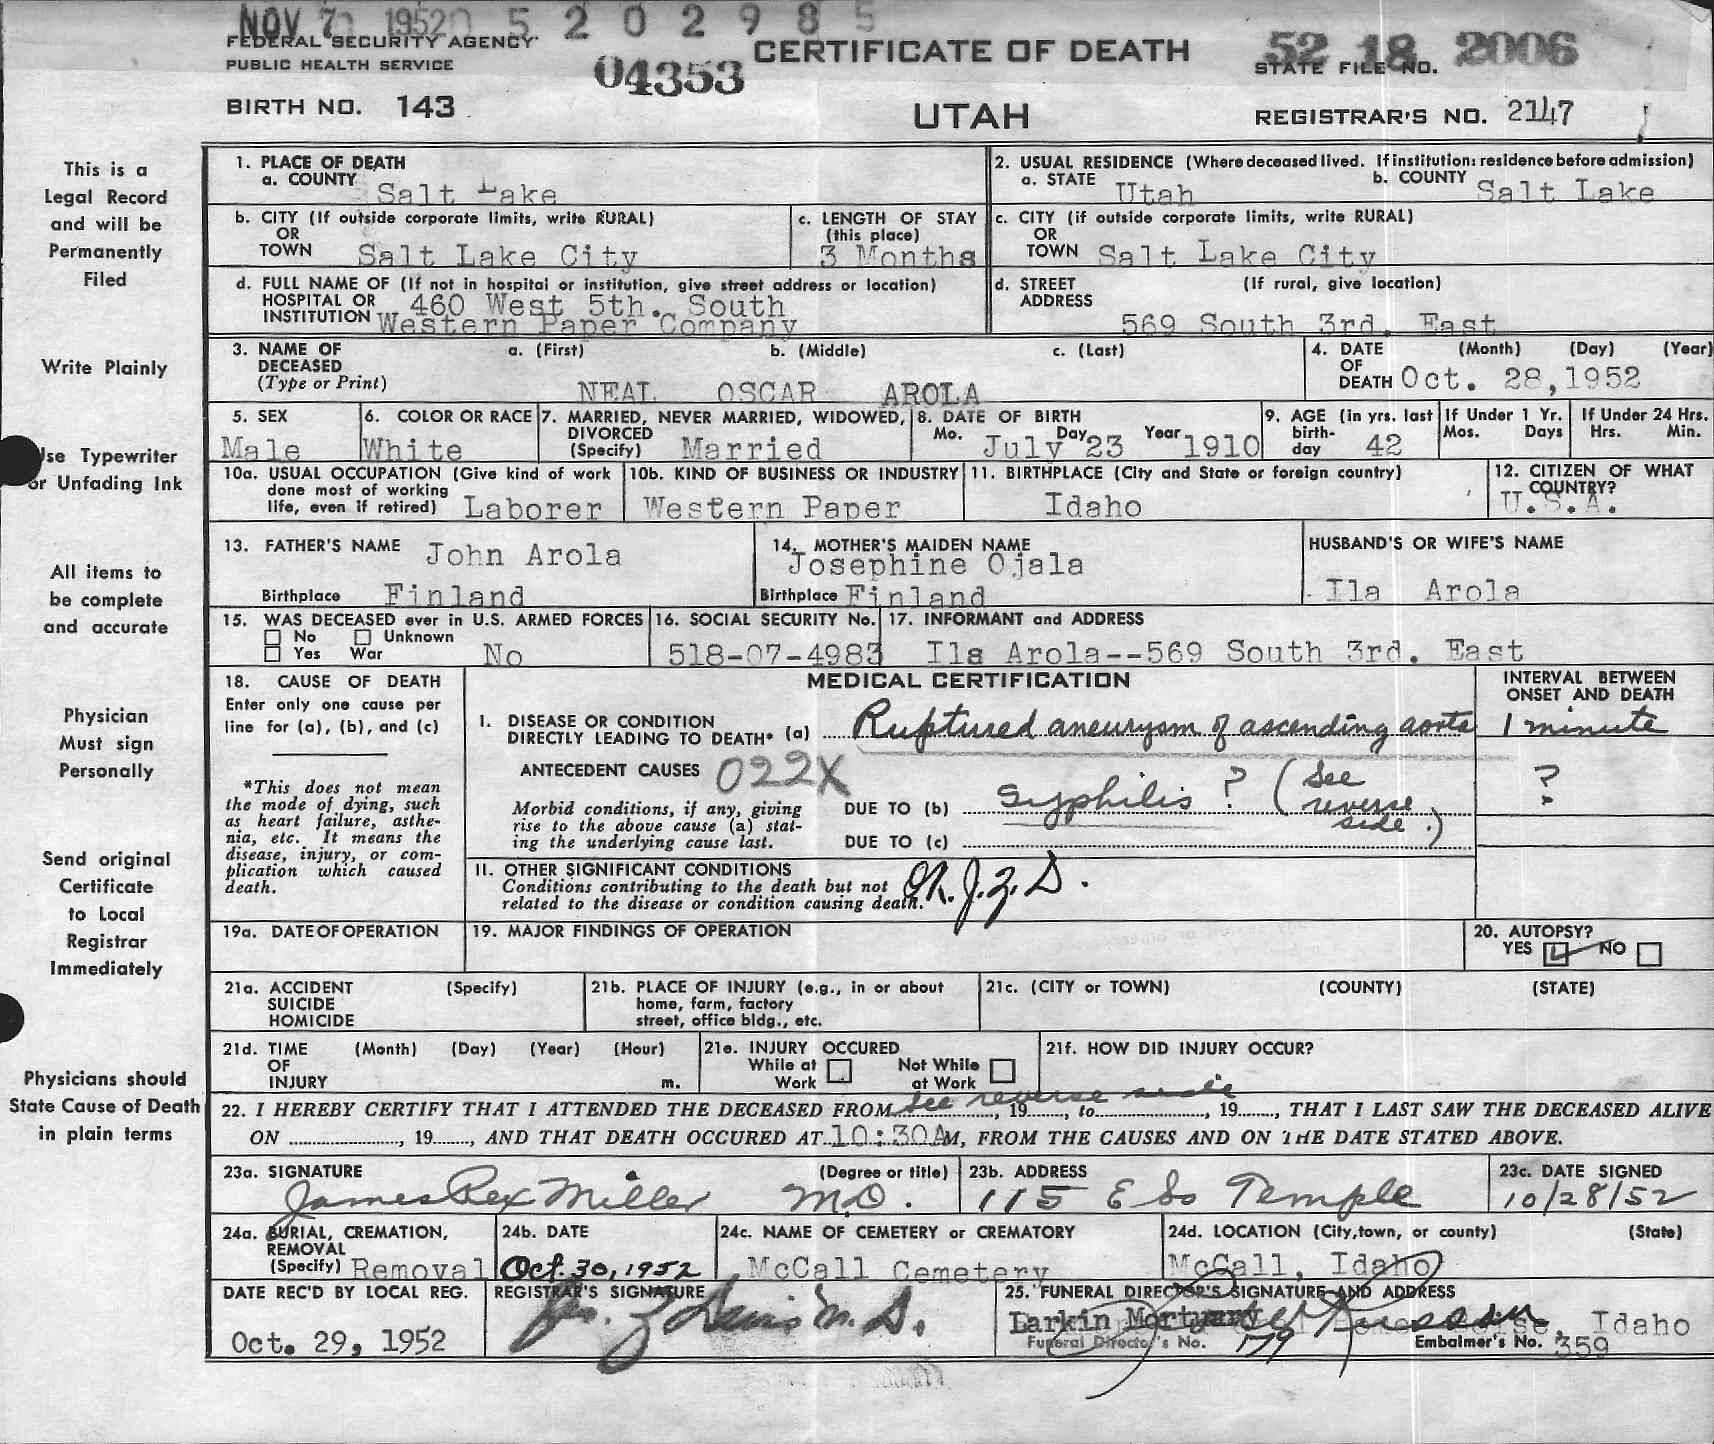 NOV 7 1952 5 2 0 2 9 8 5
FEDERAL SECURITY AGENCY
PUBLIC HEALTH SERVICE
04353
CERTIFICATE OF DEATH
52 18 2006
STATE FILE NO.
BIRTH NO. 143
UTAH
REGISTRAR'S NO. 2147
This is a
Legal Record
and will be
Permanently
Filed
Write Plainly
Use Typewriter
or Unfading Ink
All items to
be complete
and accurate
Physician
Must sign
Personally
Send original
Certificate
to Local
Registrar
Immediately
Physicians should
State Cause of Death
in plain terms
1. PLACE OF DEATH
a. COUNTY Salt Lake
2. USUAL RESIDENCE (Where deceased lived. If institution: residence before admission)
a. STATE Utah b. COUNTY Salt Lake
b. CITY (If outside corporate limits, write RURAL)
OR
TOWN Salt Lake City
c. LENGTH OF STAY
(this place)
3 Months
c. CITY (if outside corporate limits, write RURAL)
OR
TOWN Salt Lake City
d. FULL NAME OF (If not in hospital or institution, give street address or location)
HOSPITAL OR 460 West 5th. South
INSTITUTION Western Paper Company
d. STREET (If rural, give location)
ADDRESS
569 South 3rd. East
3. NAME OF a. (First) b. (Middle) c. (Last)
DECEASED
(Type or Print) NEAL OSCAR AROLA
4. DATE (Month) (Day) (Year)
OF
DEATH Oct. 28,1952
5. SEX
Male
6. COLOR OR RACE
White
7. MARRIED, NEVER MARRIED, WIDOWED,
DIVORCED
(Specify) Married
8. DATE OF BIRTH
Mo. July Day 23 Year 1910
9. AGE (in yrs. last
birth-
day 42
If Under 1 Yr.
Mos. Days
If Under 24 Hrs.
Hrs. Min.
10a. USUAL OCCUPATION (Give kind of work
done most of working
life, even if retired) Laborer
10b. KIND OF BUSINESS OR INDUSTRY
Western Paper
11. BIRTHPLACE (City and State or foreign country)
Idaho
12. CITIZEN OF WHAT
COUNTRY?
U.S.A.
13. FATHER'S NAME John Arola
Birthplace Finland
14. MOTHER'S MAIDEN NAME
Josephine Ojala
Birthplace Finland
HUSBAND'S OR WIFE'S NAME
Ila Arola
15. WAS DECEASED ever in U.S. ARMED FORCES
No Unknown
Yes War No
16. SOCIAL SECURITY No.
518-07-4983
17. INFORMANT and ADDRESS
Ila Arola--569 South 3rd. East
18. CAUSE OF DEATH
Enter only one cause per
line for (a), (b), and (c)
*This does not mean
the mode of dying, such
as heart failure, asthe-
nia, etc. It means the
disease, injury, or com-
plication which caused
death.
MEDICAL CERTIFICATION
INTERVAL BETWEEN
ONSET AND DEATH
I. DISEASE OR CONDITION
DIRECTLY LEADING TO DEATH* (a) Ruptured aneurysm of ascending aorta 1 minute
ANTECEDENT CAUSES 022X
Morbid conditions, if any, giving
rise to the above cause (a) stat-
ing the underlying cause last.
DUE TO (b) Syphilis ? (See reverse side.) ?
DUE TO (c)
II. OTHER SIGNIFICANT CONDITIONS
Conditions contributing to the death but not
related to the disease or condition causing death.
19a. DATE OF OPERATION
19. MAJOR FINDINGS OF OPERATION
20. AUTOPSY?
YES NO
21a. ACCIDENT (Specify)
SUICIDE
HOMICIDE
21b. PLACE OF INJURY (e.g., in or about
home, farm, factory
street, office bldg., etc.
21c. (CITY or TOWN) (COUNTY) (STATE)
21d. TIME (Month) (Day) (Year) (Hour)
OF
INJURY m.
21e. INJURY OCCURED
While at Work
Not While at Work
21f. HOW DID INJURY OCCUR?
22. I HEREBY CERTIFY THAT I ATTENDED THE DECEASED FROM see reverse side, 19...., to........, 19...., THAT I LAST SAW THE DECEASED ALIVE
ON ........, 19...., AND THAT DEATH OCCURED AT 10:30AM, FROM THE CAUSES AND ON THE DATE STATED ABOVE.
23a. SIGNATURE (Degree or title)
James Rex Miller M.D.
23b. ADDRESS
115 E So Temple
23c. DATE SIGNED
10/28/52
24a. BURIAL, CREMATION,
REMOVAL
(Specify) Removal
24b. DATE
Oct. 30, 1952
24c. NAME OF CEMETERY or CREMATORY
McCall Cemetery
24d. LOCATION (City, town, or county) (State)
McCall, Idaho
DATE REC'D BY LOCAL REG.
Oct. 29, 1952
REGISTRAR'S SIGNATURE
25. FUNERAL DIRECTOR'S SIGNATURE AND ADDRESS
Larkin Mortuary Idaho
Funeral Director's No. 179 Embalmer's No. 359